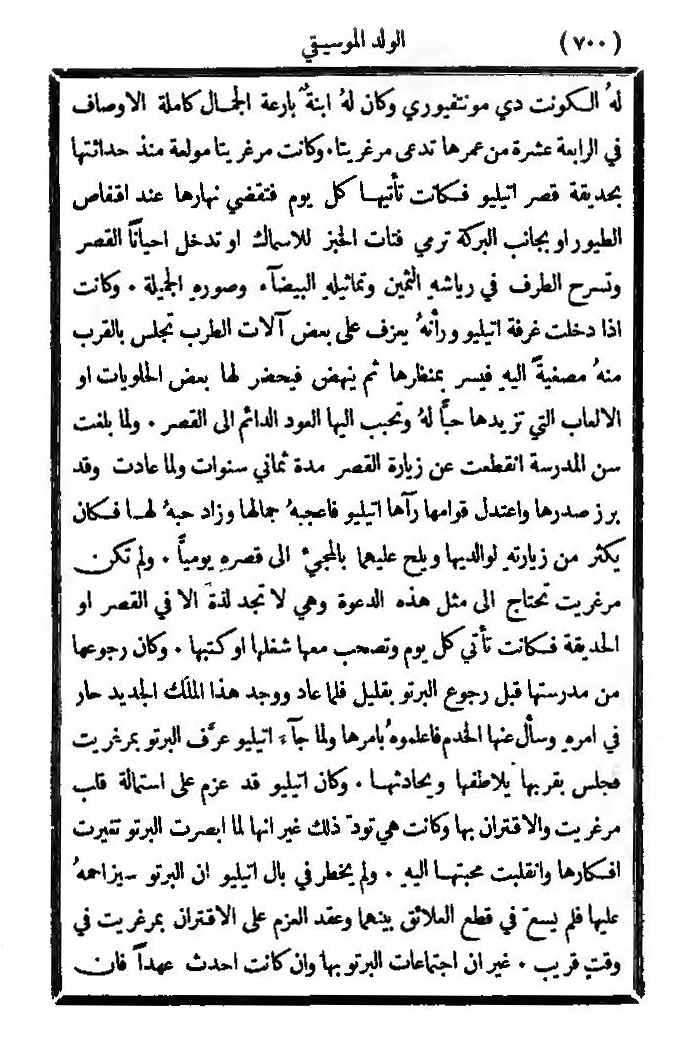 (٧٠٠) الولد الموسيقي
لهُ الكونت دي مونتفيوري وكان لهُ ابنةٌ بارعة الجمال كاملة الاوصاف
في الرابعة عشرة من عمرها تدعى مرغريتا. وكانت مرغريتا مولعة منذ حداثتها
بحديقة قصر اتيليو فكانت تأتيها كل يوم فتقضي نهارها عند اقفاص
الطيور او بجانب البركة ترمي فتات الخبز للاسماك او تدخل احياناً القصر
وتسرح الطرف في رياشهِ الثمين وتماثيلهِ البيضآء وصورهِ الجميلة . وكانت
اذا دخلت غرفة اتيليو ورأتهُ يعزف على بعض آلات الطرب تجلس بالقرب
منهُ مصغيةً اليهِ فيسر بمنظرها ثم ينهض فيحضر لها بعض الحلويات او
الالعاب التي تزيدها حبًّا لهُ وتحبب اليها العود الدائم الى القصر . ولما بلغت
سن المدرسة انقطعت عن زيارة القصر مدة ثماني سنوات ولما عادت وقد
برز صدرها واعتدل قوامها رآها اتيليو فاعجبهُ جمالها وزاد حبهُ لها فكان
يكثر من زيارتهِ لوالديها ويلح عليهما بالمجيء الى قصرهِ يوميًّا . ولم تكن
مرغريت تحتاج الى مثل هذه الدعوة وهي لا تجد لذة الا في القصر او
الحديقة فكانت تأتي كل يوم وتصحب معها شغلها او كتبها . وكان رجوعها
من مدرستها قبل رجوع البرتو بقليل فلما عاد ووجد هذا الملَك الجديد حار
في امرهِ وسأل عنها الخدم فاعلموهُ بامرها ولما جآء اتيليو عرَّف البرتو بمرغريت
فجلس بقربها يلاطفها ويحادثها . وكان اتيليو قد عزم على استمالة قلب
مرغريت والاقتران بها وكانت هي تودّ ذلك غير انها لما ابصرت البرتو تغيرت
افكارها وانقلبت محبتها اليهِ . ولم يخطر في بال اتيليو ان البرتو سيزاحمهُ
عليها فلم يسعَ في قطع العلائق بينهما وعقد العزم على الاقتران بمرغريت في
وقتٍ قريب . غير ان اجتماعات البرتو بها وان كانت احدث عهداً فان